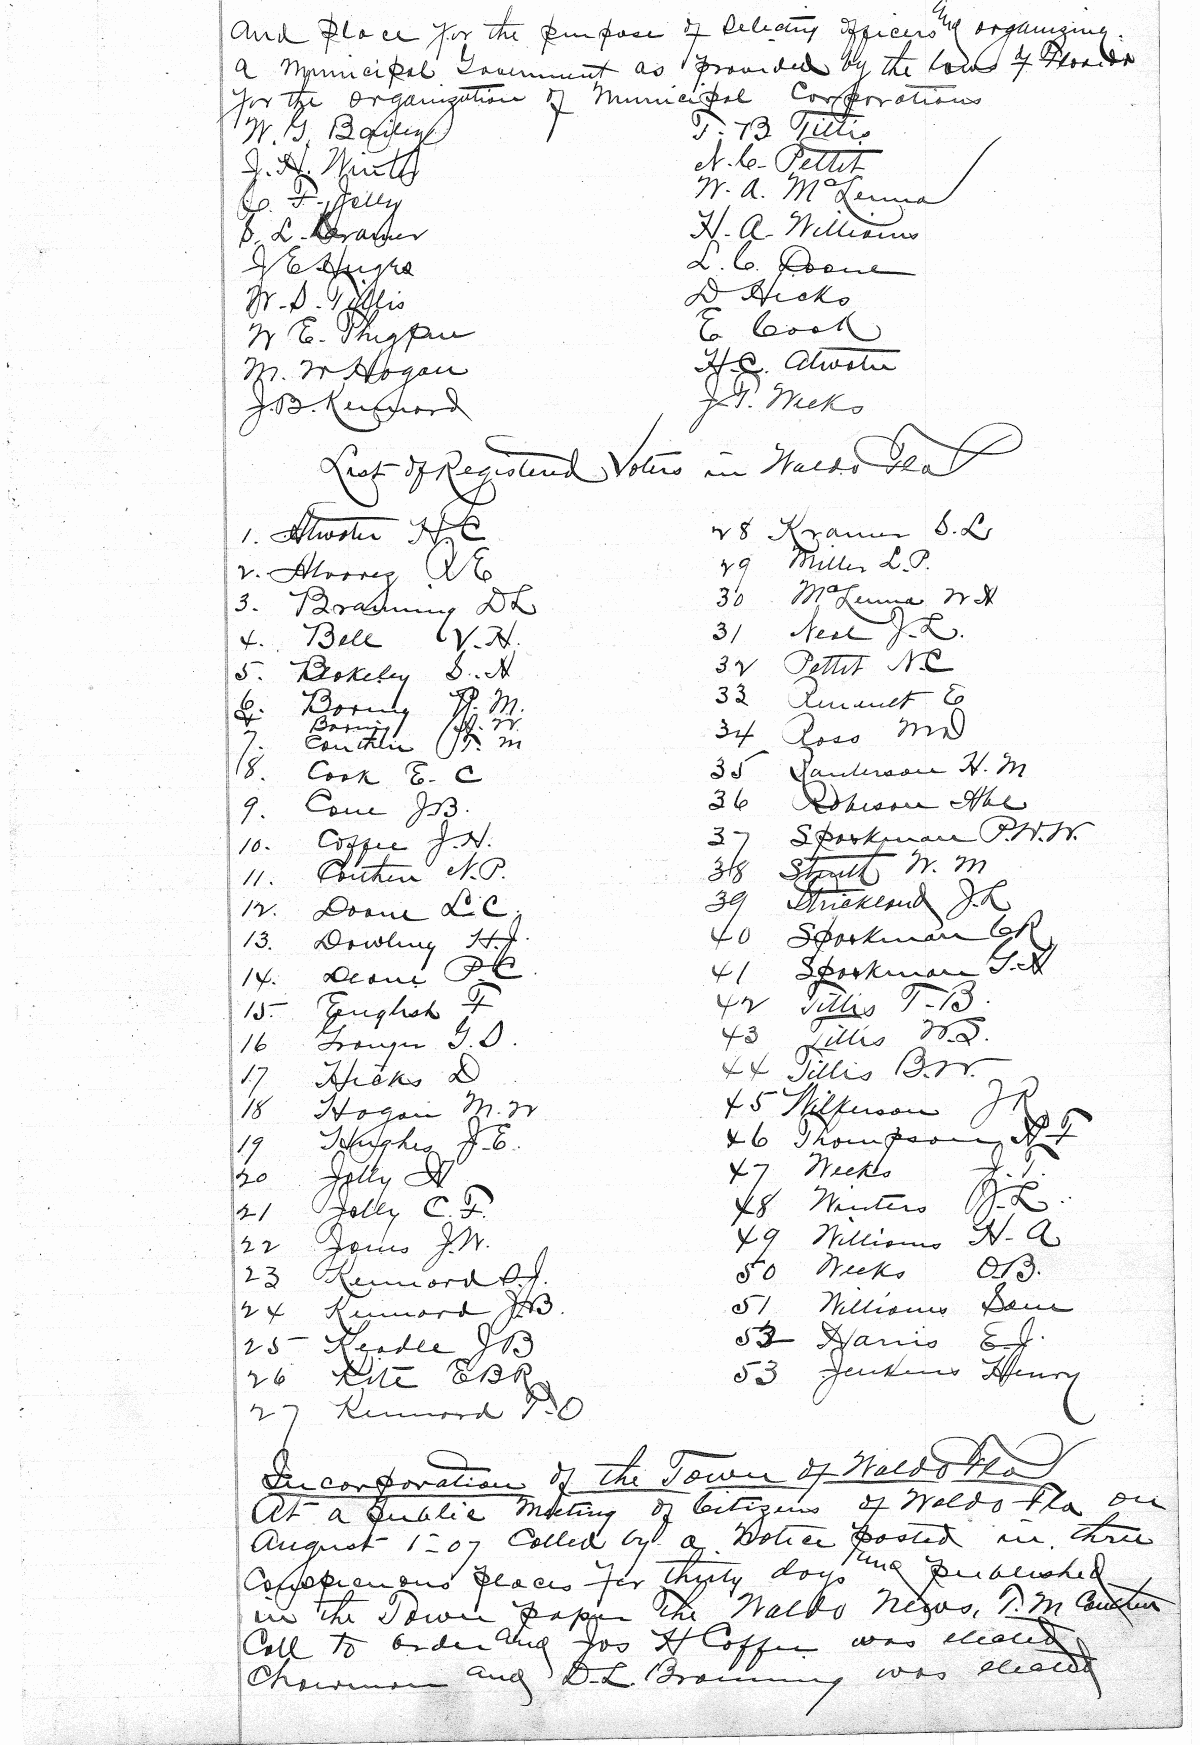 and place for the purpose of selecting officers and organizing
a Municipal Government as provided by the laws of Florida
for the organization of Municipal Corporations
W. G. Bailey
J. H. Wirth
C. F. Jolly
S. L. Kramer
J E Hughs
W. S. Tillis
W E. Thigpin
M. W Hogan
J. B. Kennard
T. B Tillis
N. C. Pettit
W. A. McLenna
H. A. Williams
L. C. Doane
D Hicks
E Cook
H. C. Atwater
J. T. Weeks
List of Registered Voters in Waldo Fla
1. Atwater H C
2. Alvarez R E
3. Branning D L
4. Bell V. H.
5. Blakeley S. A
6. Boring P. M.
Boring W.
7. Cauthen T. M
8. Cook E. C
9. Cone J B.
10. Coffee J. H.
11. Cauthen N. P.
12. Doane L. C.
13. Dowling H. J.
14. Deane P. C.
15 English F
16 Granger G. D.
17 Hicks D
18 Hogan M. W
19 Hughes J. E.
20 Jolly A
21 Jolly C. F.
22 Jones J. W.
23 Kennard J.
24 Kennard J. B.
25 Keadle J B
26 Kite E B R
27 Kennard T. O
28 Kramer S. L
29 Miller L. P.
30 McLenna W A
31 Neal J. L.
32 Pettit N. C
33 E
34 Ross M D
35 Sanderson H. M
36 Robeson Abe
37 Sparkman P. W. W.
38 W. M
39 Strickland J. L
40 Sparkman C R
41 Sparkman G. A
42 Tillis T. B.
43 Tillis W. S.
44 Tillis B. W.
45 Wilkerson J R
46 Thompson A F
47 Weeks J. T.
48 Winters J. L
49 Williams H. A
50 Weeks O. B.
51 Williams Sam
53 Harris E. J.
53 Jenkins Henry
Incorporation of the Town of Waldo Fla
At a public Meeting of Citizens of Waldo Fla on
August 1-07 Called by a Notice posted in three
conspicuous places for thirty days and published
in the Town paper The Waldo News, T. M Cauthen
Call to order and Jos H Coffee was elected
Chairman and D. L. Branning was elected